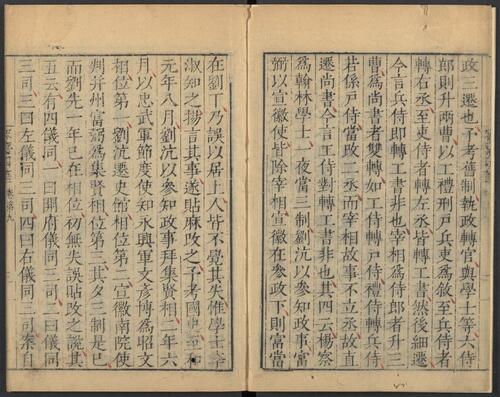 政三遷也予考舊制執政轉官與學士等六侍
郎則升兩曹以工禮刑戶兵吏為敘至兵侍者
轉右丞至吏侍者轉左丞皆轉工書然後細遷
今言兵侍即轉工書非也宰相為侍郎者升三
曹爲尚書者雙轉如工侍轉戶侍禮侍轉兵侍
若係戶侍當改二丞而宰相故事不立丞故直
遷尚書今言工侍對轉工書非也其四云楊察
爲翰林學士一夜當三制劉沆以參知政事富
弼以宣徽使皆除宰相宣徽在參政下則富當
在劉下乃誤以居上人皆不覺其失惟學士李
淑知之拶言其事遂貼麻改之予考國史至和
元年八月劉沆以參知政事拜集賢相二年六
月以忠武軍節度使知永興軍文彥博爲昭文
相位第一劉沆遷史館相位第二宣徽南院使
判并州富弼爲集賢相位第三其夕三制是已
而劉先一年已在相位初無失誤貼改之說其
五云有四儀同一曰開府儀同三司二曰儀同
三司三曰左儀同三司四曰右儀同三司案自